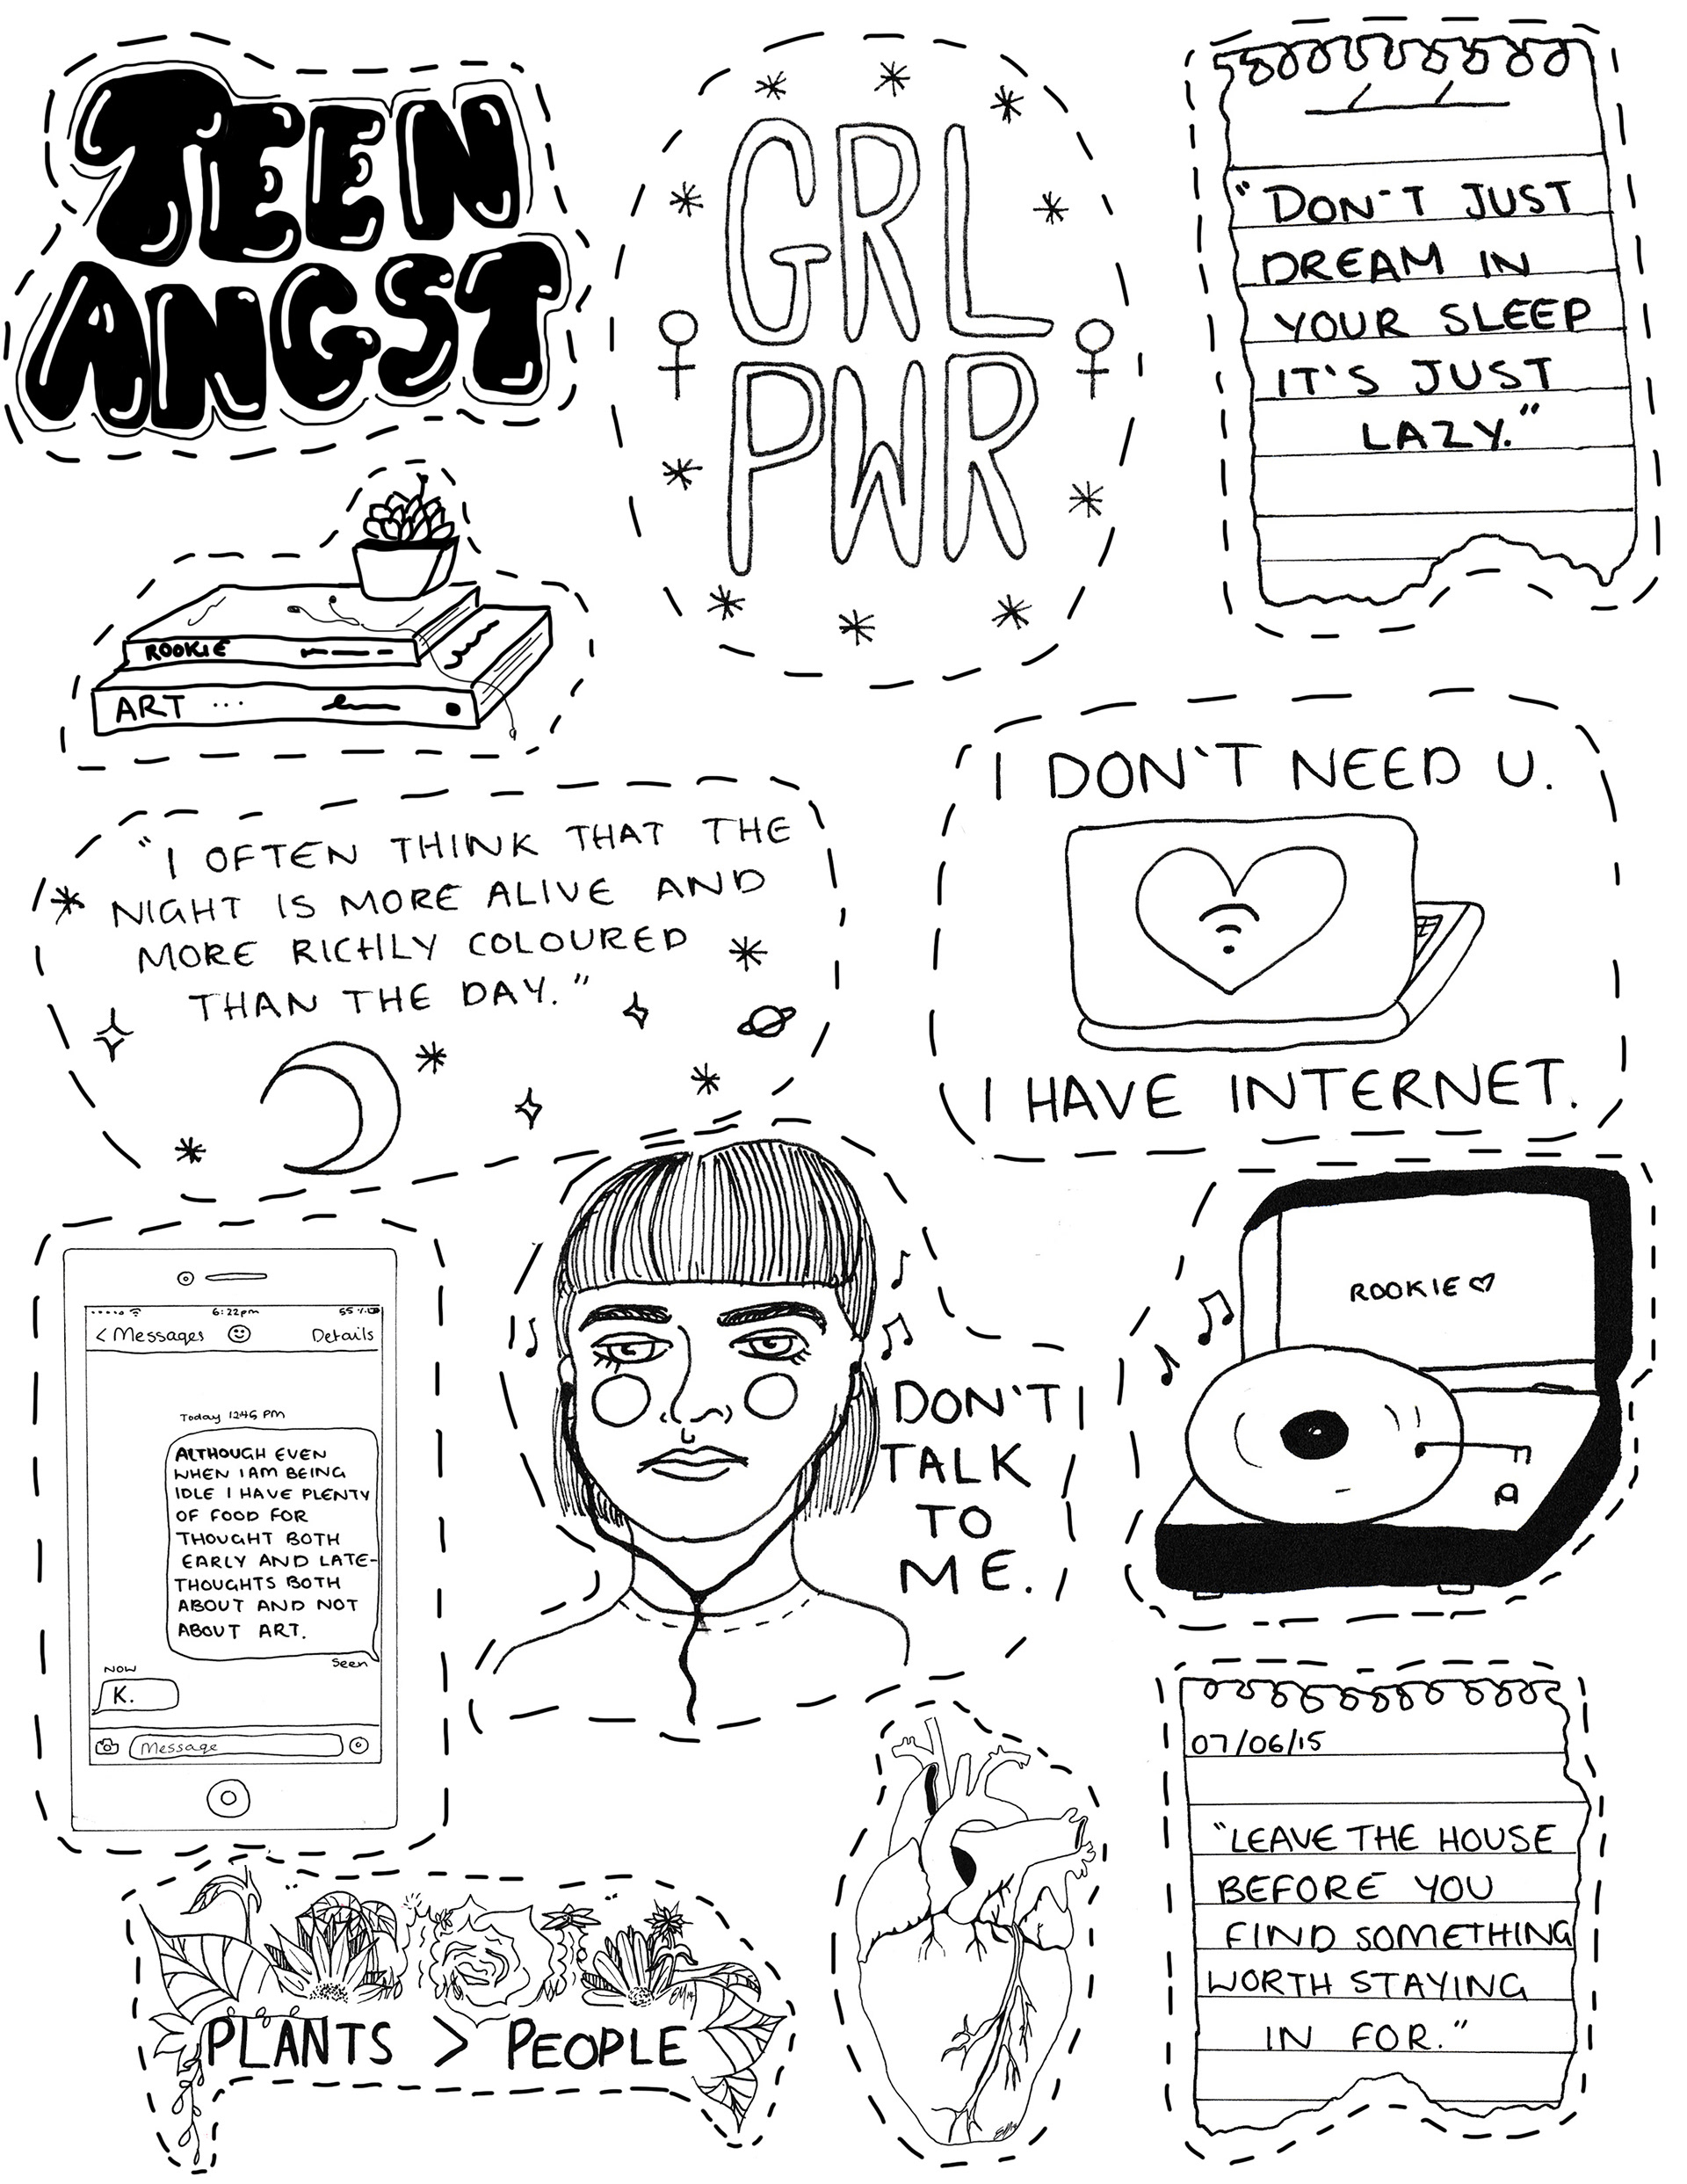 TEEN
ANGST
GRL
PWR
"DON'T JUST
DREAM IN
YOUR SLEEP
IT'S JUST
LAZY."
ROOKIE
ART ...
"I OFTEN THINK THAT THE
NIGHT IS MORE ALIVE AND
MORE RICHLY COLOURED
THAN THE DAY."
I DON'T NEED U.
I HAVE INTERNET.
6:22pm 55%
< Messages Details
Today 12:46 PM
ALTHOUGH EVEN
WHEN I AM BEING
IDLE I HAVE PLENTY
OF FOOD FOR
THOUGHT BOTH
EARLY AND LATE-
THOUGHTS BOTH
ABOUT AND NOT
ABOUT ART.
Seen
NOW
K.
Message
DON'T
TALK
TO
ME.
ROOKIE ♡
07/06/15
"LEAVE THE HOUSE
BEFORE YOU
FIND SOMETHING
WORTH STAYING
IN FOR."
PLANTS > PEOPLE